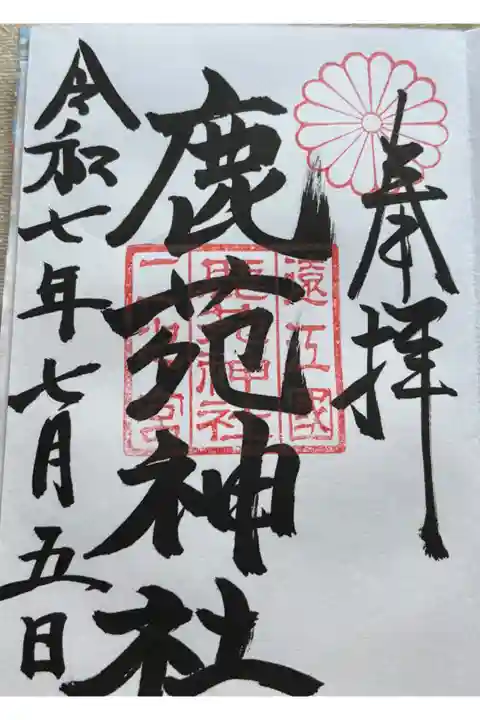 奉拝
鹿苑神社
令和七年七月五日
遠江國
鹿苑神社